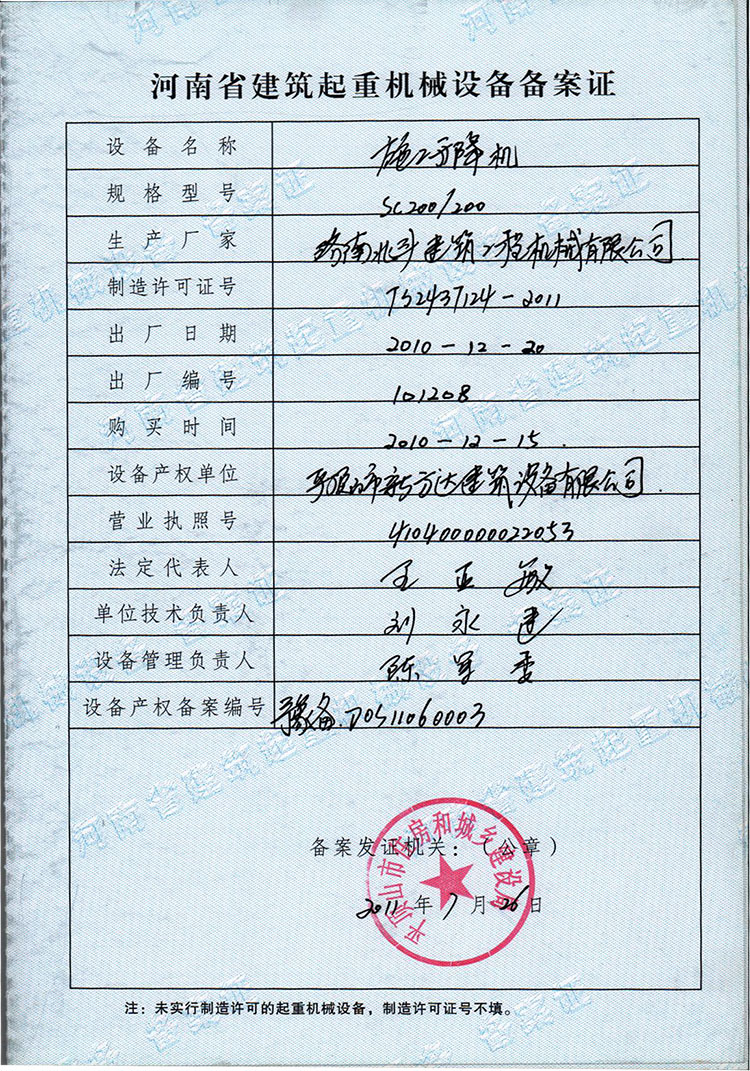 河南省建筑起重机械设备备案证
设备名称 施工升降机
规格型号 SC200/200
生产厂家 济南北斗建筑工程机械有限公司
制造许可证号 TS2437124-2011
出厂日期 2010-12-20
出厂编号 101208
购买时间 2010-12-15.
设备产权单位 平顶山市新方达建筑设备有限公司.
营业执照号 410400000022053
法定代表人 王亚敏
单位技术负责人 刘永建
设备管理负责人 陈军委
设备产权备案编号 豫备.D0S11060003
备案发证机关：（公章）
平顶山市住房和城乡建设局
2011年7月26日
注：未实行制造许可的起重机械设备，制造许可证号不填。